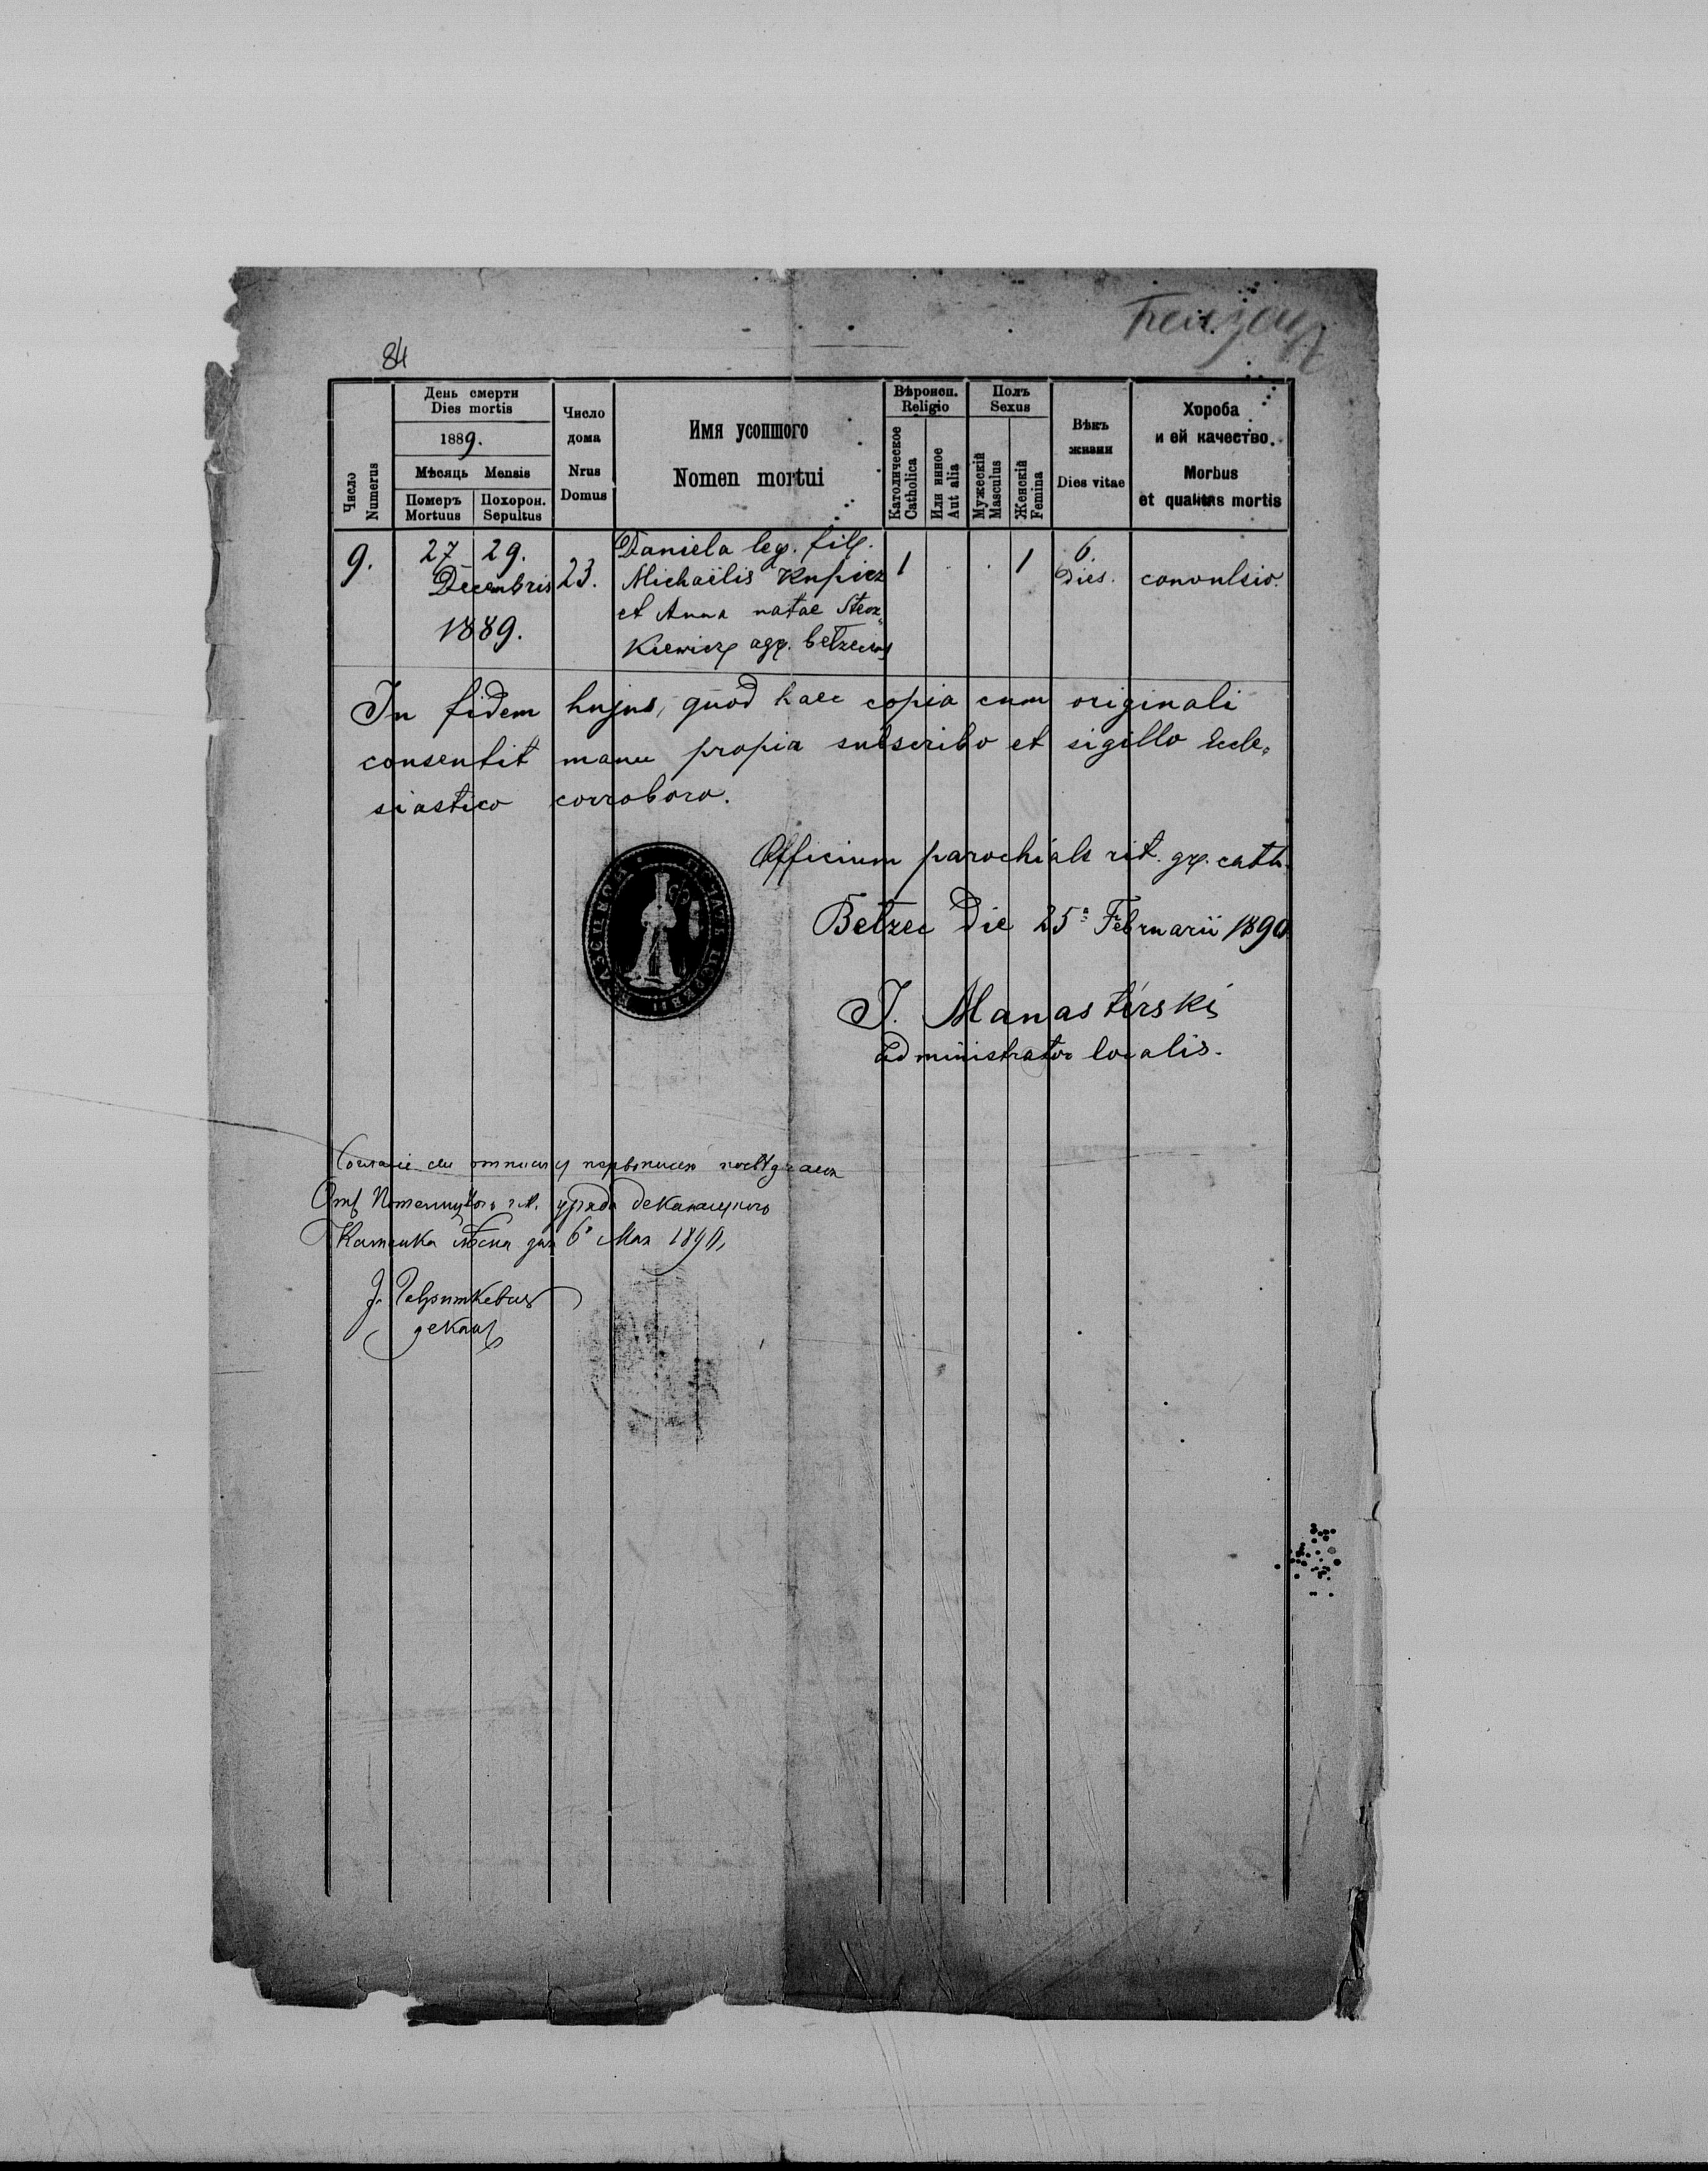 84
Число
Numerus
День смерти
Dies mortis
1889.
Мѣсяць Mensis
Померъ
Mortuus
Похорон.
Sepultus
Число
дома
Nrus
Domus
Имя усопшого
Nomen mortui
Вѣроисп.
Religio
Католическое
Catholica
Или инное
Aut alia
Полъ
Sexus
Мужескій
Masculus
Женскій
Femina
Вѣкъ
жизни
Dies vitae
Хороба
и ей качество.
Morbus
et qualitas mortis
9. 27 29. 23. Daniela leg. fil. 1 . . 1 6. convulsio.
Decembris Michaëlis Kupicz Dies.
1889. et Anna natae Stecz=
kiewicz agr.
In fidem hujus, quod haec copia cum originali
consentit manu propia subscribo et sigillo Eccle=
siastico corroboro.
Officium parochiale rit. gr. cath.
Betzec Die 25ª Februarii 1890
J. Manastirski
administrator localis.
уряда деканацкого
Каменка лѣсна дня 6º Мая 1890,
декан